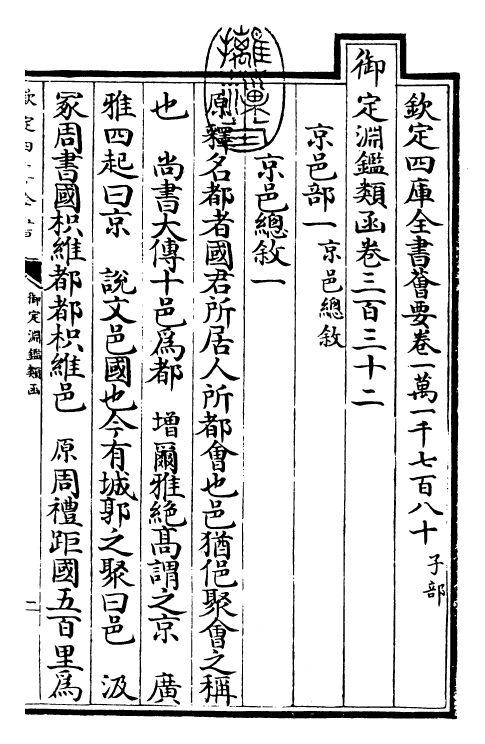 欽定四庫全書薈要卷一萬一千七百八十 子部
御定淵鑑類函卷三百三十二
京邑部一 京邑總敘
京邑總敘一
原釋名都者國君所居人所都會也邑猶俋聚會之稱
也 尚書大傳十邑爲都 增爾雅絶髙謂之京 廣
雅四起曰京 說文邑國也今有城郭之聚曰邑 汲
冢周書國枳維都都枳維邑 原周禮距國五百里爲
御定淵鑑類函